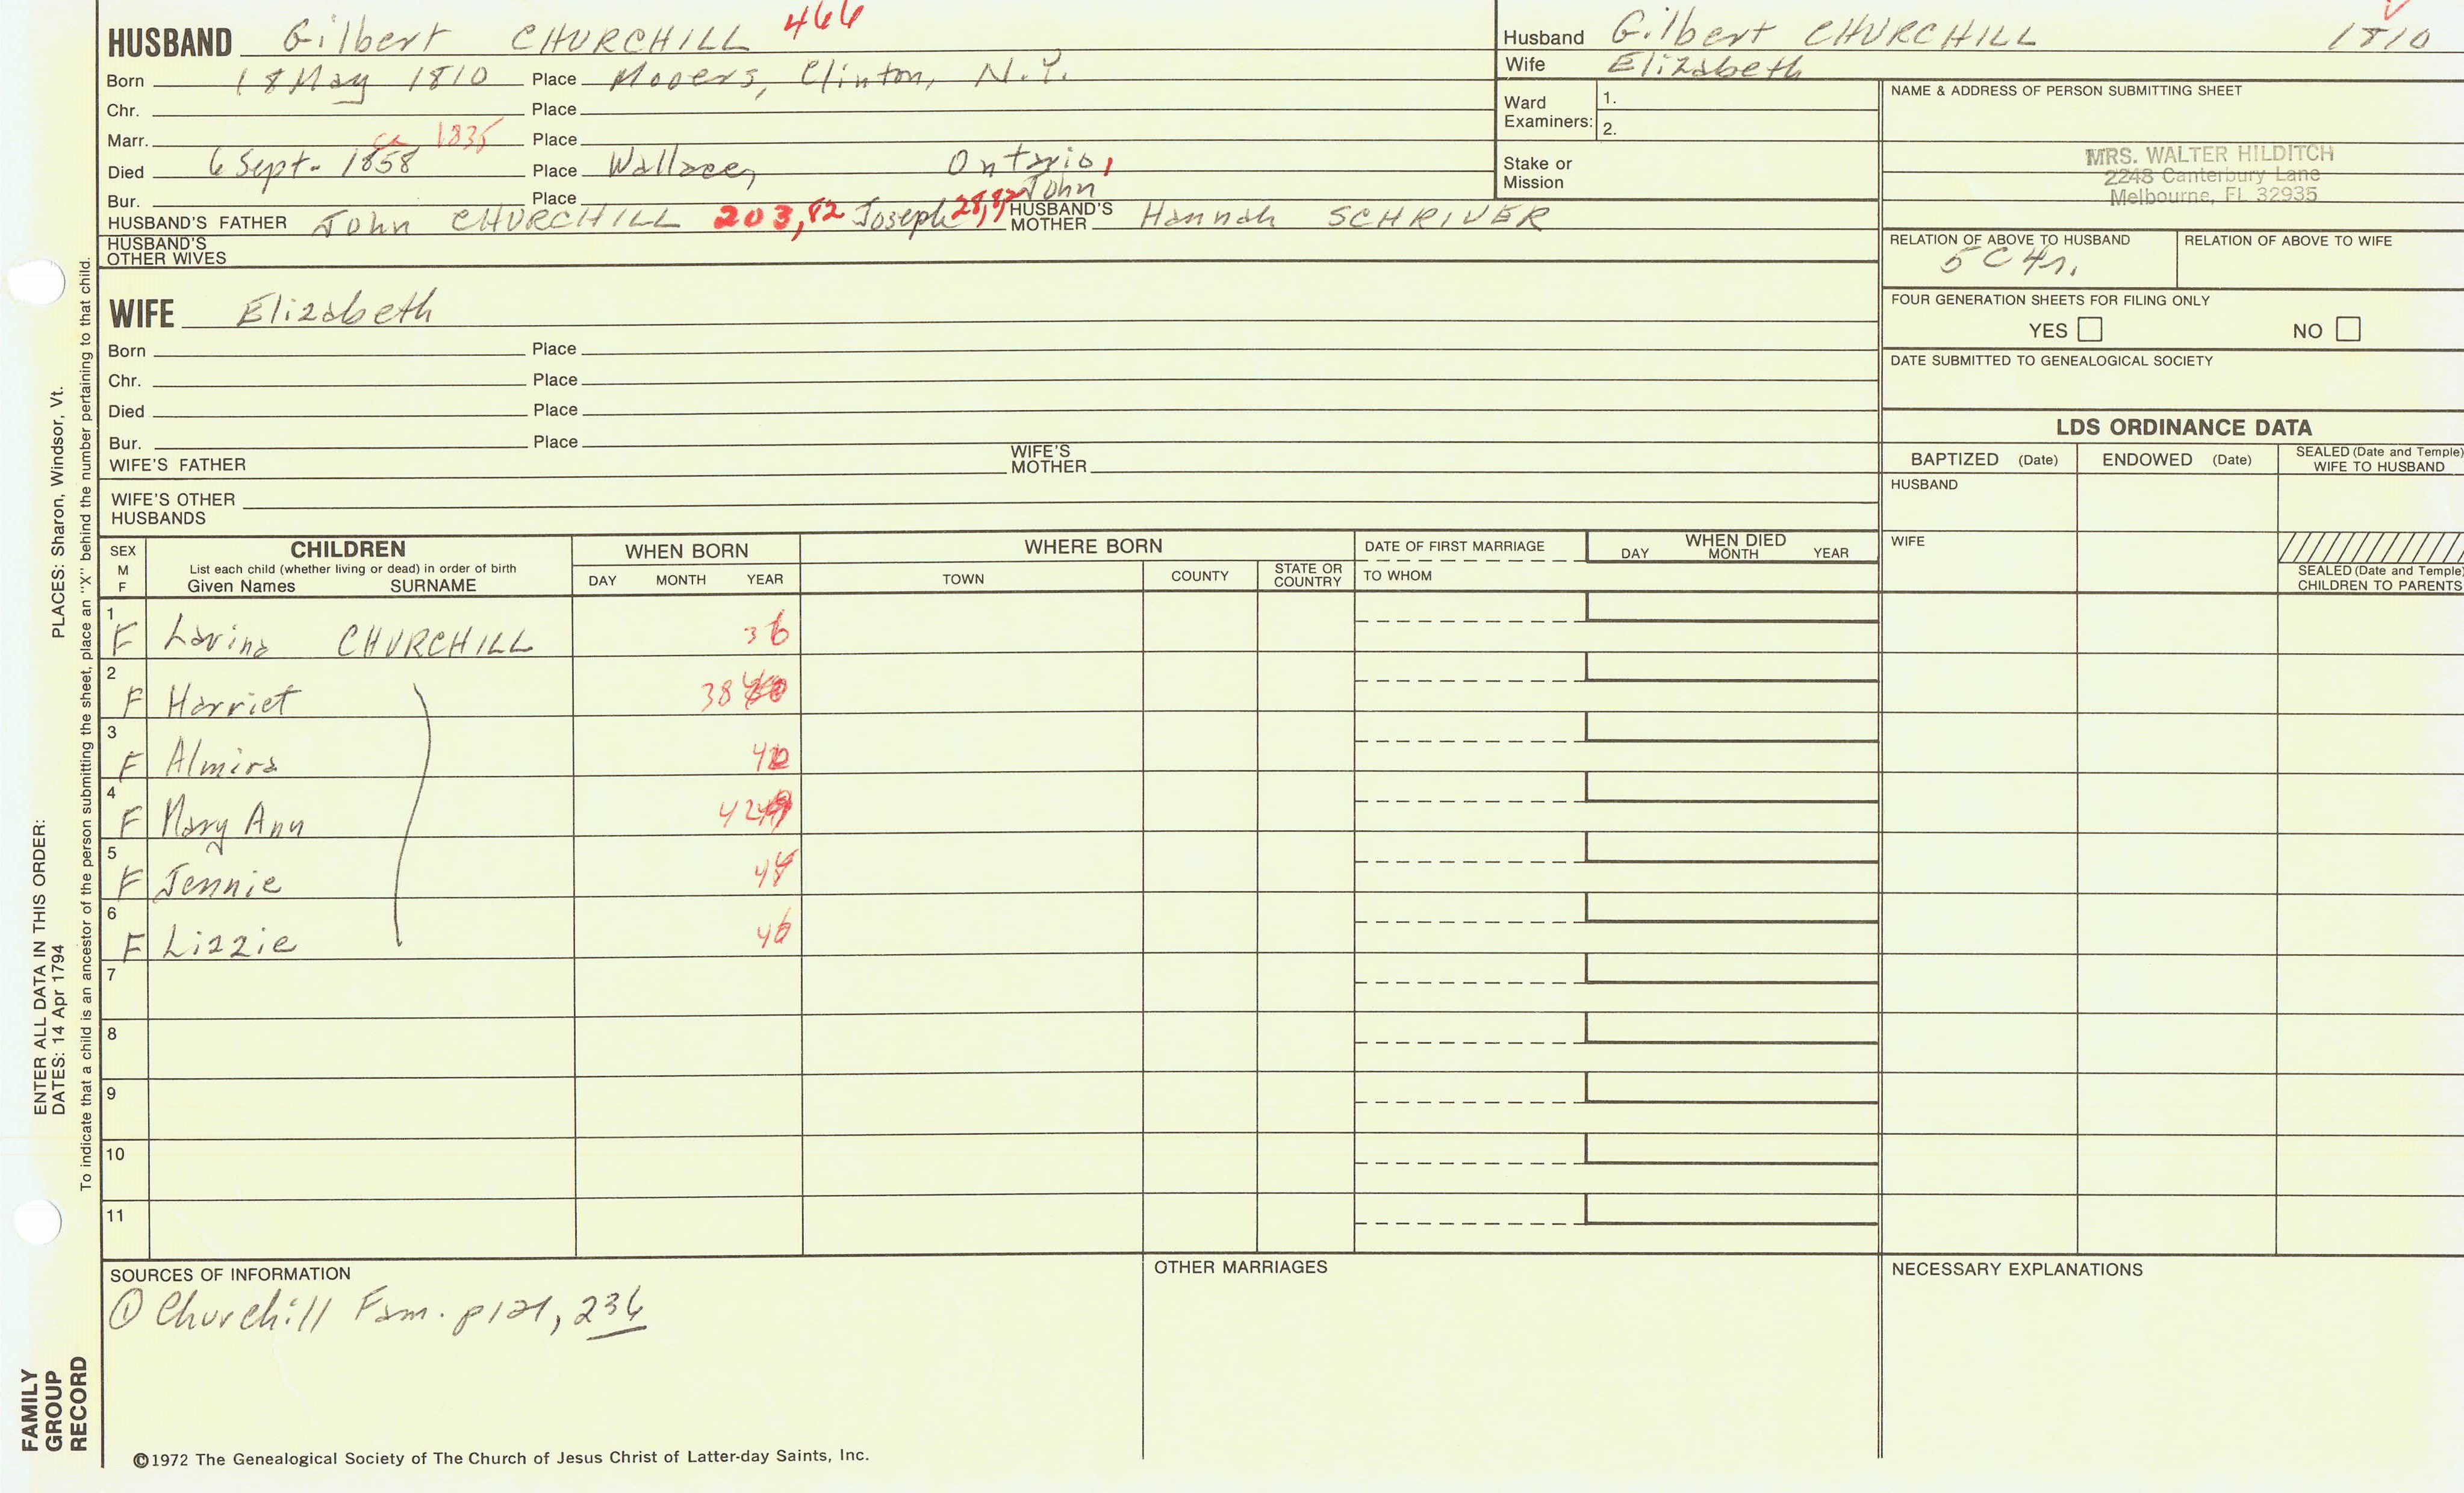 HUSBAND Gilbert CHURCHILL 466
Born 18 May 1810 Place Mooers, Clinton, N.Y.
Chr. Place
Marr. ca 1835 Place
Died 6 Sept. 1858 Place Wallace, Ontario,
Bur. Place
HUSBAND'S FATHER John CHURCHILL 203,82 Joseph John HUSBAND'S MOTHER Hannah SCHRIVER
HUSBAND'S OTHER WIVES
WIFE Elizabeth
Born Place
Chr. Place
Died Place
Bur. Place
WIFE'S FATHER WIFE'S MOTHER
WIFE'S OTHER HUSBANDS
Husband Gilbert CHURCHILL 1810
Wife Elizabeth
Ward Examiners: 1.
2.
Stake or Mission
NAME & ADDRESS OF PERSON SUBMITTING SHEET
MRS. WALTER HILDITCH
2248 Canterbury Lane
Melbourne, FL 32935
RELATION OF ABOVE TO HUSBAND RELATION OF ABOVE TO WIFE
5C4r.
FOUR GENERATION SHEETS FOR FILING ONLY
YES NO
DATE SUBMITTED TO GENEALOGICAL SOCIETY
LDS ORDINANCE DATA
BAPTIZED (Date) ENDOWED (Date) SEALED (Date and Temple) WIFE TO HUSBAND
HUSBAND
WIFE
SEALED (Date and Temple) CHILDREN TO PARENTS
SEX M F CHILDREN WHEN BORN WHERE BORN DATE OF FIRST MARRIAGE WHEN DIED
List each child (whether living or dead) in order of birth
Given Names SURNAME DAY MONTH YEAR TOWN COUNTY STATE OR COUNTRY TO WHOM DAY MONTH YEAR
1 F Lavina CHURCHILL 36
2 F Harriet 38
3 F Almira 40
4 F Mary Ann 42
5 F Jennie 44
6 F Lizzie 46
7
8
9
10
11
SOURCES OF INFORMATION
① Churchill Fam. p121, 236
OTHER MARRIAGES
NECESSARY EXPLANATIONS
©1972 The Genealogical Society of The Church of Jesus Christ of Latter-day Saints, Inc.
FAMILY GROUP RECORD
ENTER ALL DATA IN THIS ORDER:
DATES: 14 Apr 1794 PLACES: Sharon, Windsor, Vt.
To indicate that a child is an ancestor of the person submitting the sheet, place an "X" behind the number pertaining to that child.